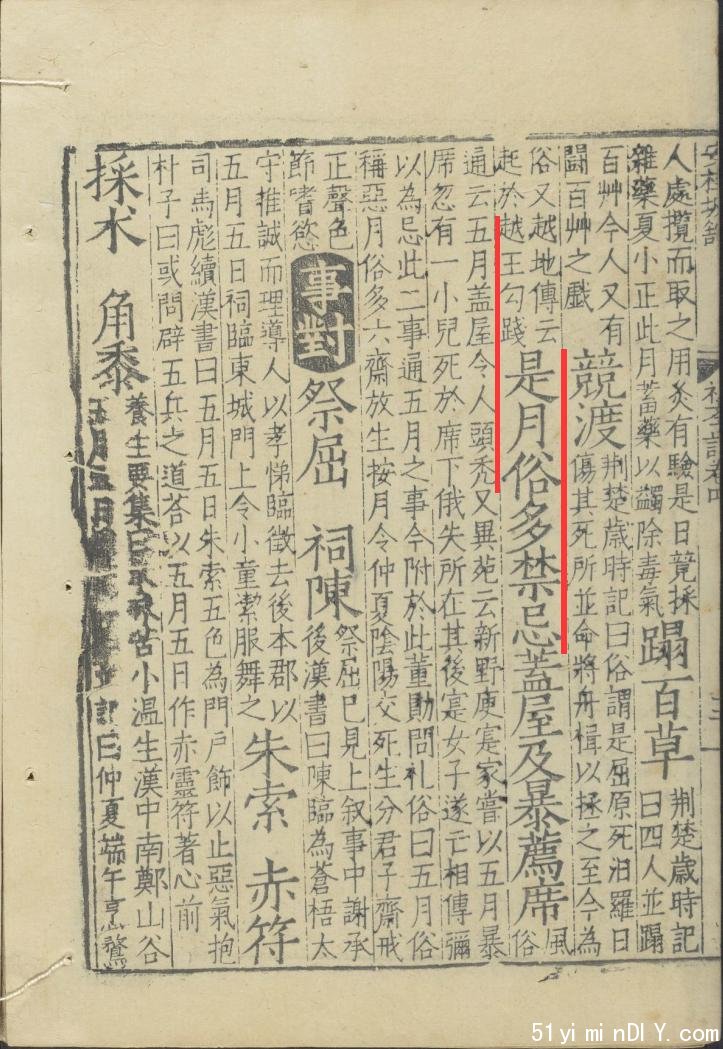 安桂坡館
初學記卷四
三
人處攬而取之用灸有驗是日競採
雜藥夏小正此月蓄藥以蠲除毒氣
蹋百草
荆楚歲時記
曰四人並蹋
百艸今人又有
鬭百艸之戲
競渡
荆楚歲時記曰俗謂是屈原死汨羅日
傷其死所並命將舟楫以拯之至今為
俗又越地傳云
起於越王勾踐
是月俗多禁忌蓋屋及暴薦席
風
俗
通云五月蓋屋令人頭秃又異苑云新野庾寔家嘗以五月暴
席忽有一小兒死於席下俄失所在其後寔女子遂亡相傳彌
以為忌此二事通五月之事今附於此董勛問礼俗曰五月俗
稱惡月俗多六齋放生按月令仲夏陰陽交死生分君子齋戒
正聲色
節嗜慾
事對
祭屈 祠陳
祭屈已見上叙事中謝承
後漢書曰陳臨為蒼梧太
守推誠而理導人以孝悌臨徵去後本郡以
五月五日祠臨東城門上令小童潔服舞之
朱索 赤符
司馬彪續漢書曰五月五日朱索五色為門戶飾以止惡氣抱
朴子曰或問辟五兵之道荅以五月五日作赤靈符著心前
採术 角黍
養生要集曰术味苦小温生漢中南鄭山谷
五月五日 記曰仲夏端午烹鶩
51yiminDIY.com